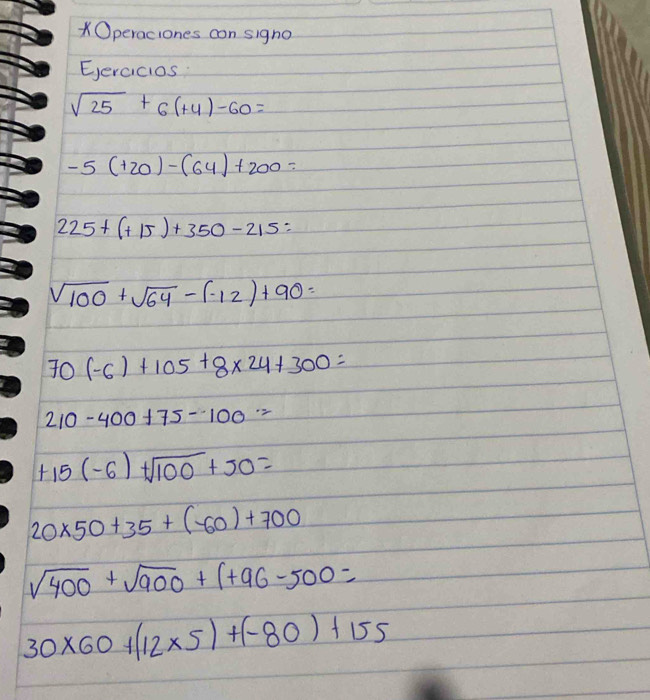 *Operaciones con signo
Ejercicios:
√25 + 6(+4)-60=
-5 (+20)-(64)+200=
225+(+15)+350-215=
√100 +√64 -(-12)+90=
70(-6)+105+8x24+300=
210-400+75-100=
+15(-6)+√100+50=
20x50+35+(-60)+700
√400 +√900 +(+96-500=
30x60+(12x5)+(-80)+155